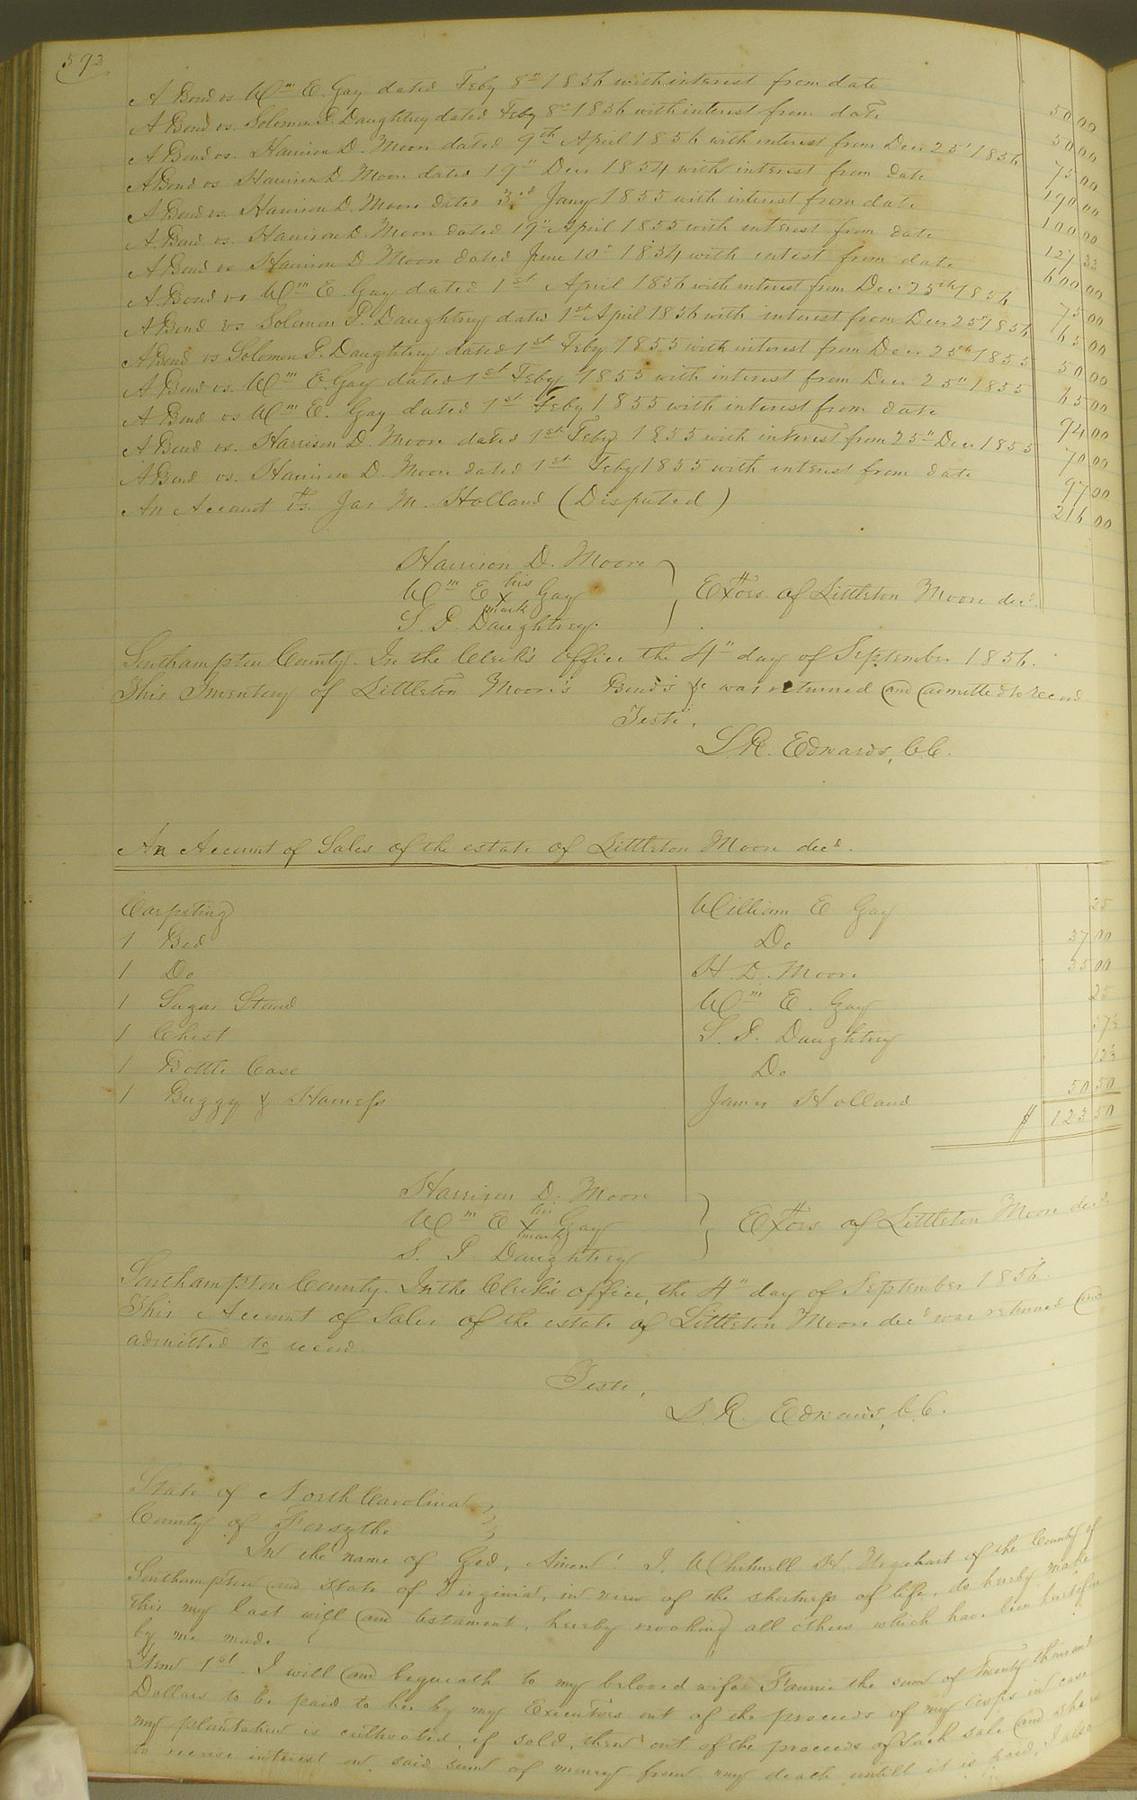 593
A Bond vs. Wm E. Gay dated Feby 8th 1856 with interest from date 50 00
A Bond vs. Solomon P. Daughtrey dated Feby 8th 1856 with interest from date 50 00
A Bond vs. Harrison D. Moon dated 9th April 1856 with interest from Decr 25th 1856 75 00
A Bond vs Harrison D. Moon dated 19th Decr 1854 with interest from date 190 00
A Bond vs. Harrison D. Moon dated 3rd Jany 1855 with interest from date 100 00
A Bond vs. Harrison D. Moon dated 19th April 1855 with interest from date 127 33
A Bond vs Harrison D Moon dated June 10th 1854 with intest from date 600 00
A Bond vs Wm E Gay dated 1st April 1856 with interest from Decr 25th 1856 75 00
A Bond vs Solomon P. Daughtrey dated 1st April 1856 with interest from Decr 25th 1856 65 00
A Bond vs Solomon P. Daughtrey dated 1st Feby 1855 with interest from Decr 25th 1855 50 00
A Bond vs. Wm E. Gay dated 1st Feby 1855 with interest from Decr 25th 1855 65 00
A Bond vs Wm E. Gay dated 1st Feby 1855 with interest from date 94 00
A Bond vs. Harrison D. Moon dated 1st Feby 1855 with interest from 25th Decr 1855 70 00
A Bond vs. Harrison D. Moon dated 1st Feby 1855 with interest from date 97 00
An Account vs. Jas M. Holland (Disputed) 216 00
Harrison D. Moore
Wm E his x mark Gay } Extors of Littleton Moon decd.
S. P. Daughtrey.
Southampton County. In the Clerk's Office the 4th day of September 1856.
This Inventory of Littleton Moon's Bonds &c was returned and admitted to record
Teste,
L. R. Edwards, C.C.
An Account of Sales of the estate of Littleton Moon decd.
Carpeting William E Gay 25
1 Bed Do 37 00
1 Do H. D. Moore 35 00
1 Sugar Stand Wm E. Gay 25
1 Chest S. P. Daughtrey 37½
1 Bottle Case Do 12½
1 Buggy & Harness James Holland 50 50
$ 123 50
Harrison D. Moon
Wm E his x mark Gay } Extors of Littleton Moon decd.
S. P Daughtrey
Southampton County. In the Clerk's office, the 4th day of September 1856.
This Account of Sales of the estate of Littleton Moon decd was returned and
admitted to record.
Teste,
L. R. Edwards, C.C.
State of North Carolina
County of Forsythe
In the name of God, Amen! I, Whitmell H. Urquhart of the County of
Southampton and State of Virginia, in view of the shortness of life, do hereby make
this my last will and testament, hereby revoking all others which have been heretofore
by me made.
Item 1st. I will and bequeath to my beloved wife Fannie the sum of Twenty thousand
Dollars to be paid to her by my Executors out of the proceeds of my Crops in case
my plantation is cultivated, if sold, then out of the proceeds of such sale and she is
to receive interest on said sum of money from my death untill it is paid, I also